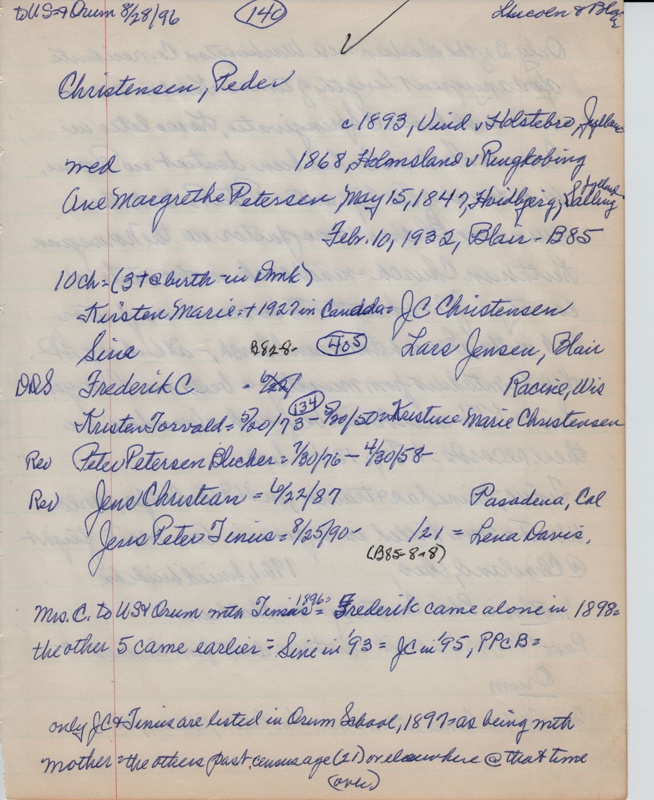 to US & Orum 8/28/96 (140) Lincoln & Blair
Christensen, Peder
c 1893, Vind v Holstebro, Jylland
med 1868, Holmsland v Ringkobing
Ane Margrethe Petersen, May 15, 1847, Hvidbjerg, Salling Jylland
Feb. 10, 1932, Blair - B85
10 ch = (3 + @ birth - in Dmk)
Kirsten Marie = + 1927 in Canada = J C Christensen
Sine B828- (405) Lars Jensen, Blair
DDS Frederik C - Racine, Wis
(134)
Kristen Torvald = 5/20/73 - 5/20/50 = Kristine Marie Christensen
Rev Peter Petersen Blicher = 7/30/76 - 4/30/58-
Rev Jens Christian = 6/22/87 Pasadena, Cal
Jens Peter Tinius = 8/25/90- 1/21 = Lena Davis,
(B85-8-8)
Mrs. C. to US & Orum mth Tinius 1896 = Frederik came alone in 1898=
the other 5 came earlier = Sine in '93 = JC in '95, PPCB =
only JC & Tinius are listed in Orum School, 1897 = as being mth
mother = the others past census age (21) or elsewhere @ that time
(over)